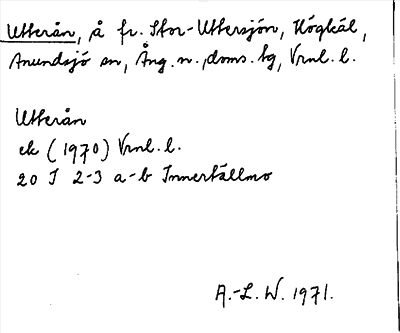 Utterån, å fr. Stor-Uttersjön, Högkäl,
Anundsjö sn, Ång. n. doms. tg, Vrnl. l.
Utterån
ek (1970) Vrnl. l.
20 I 2-3 a-b Innertällmo
A.-L. W. 1971.